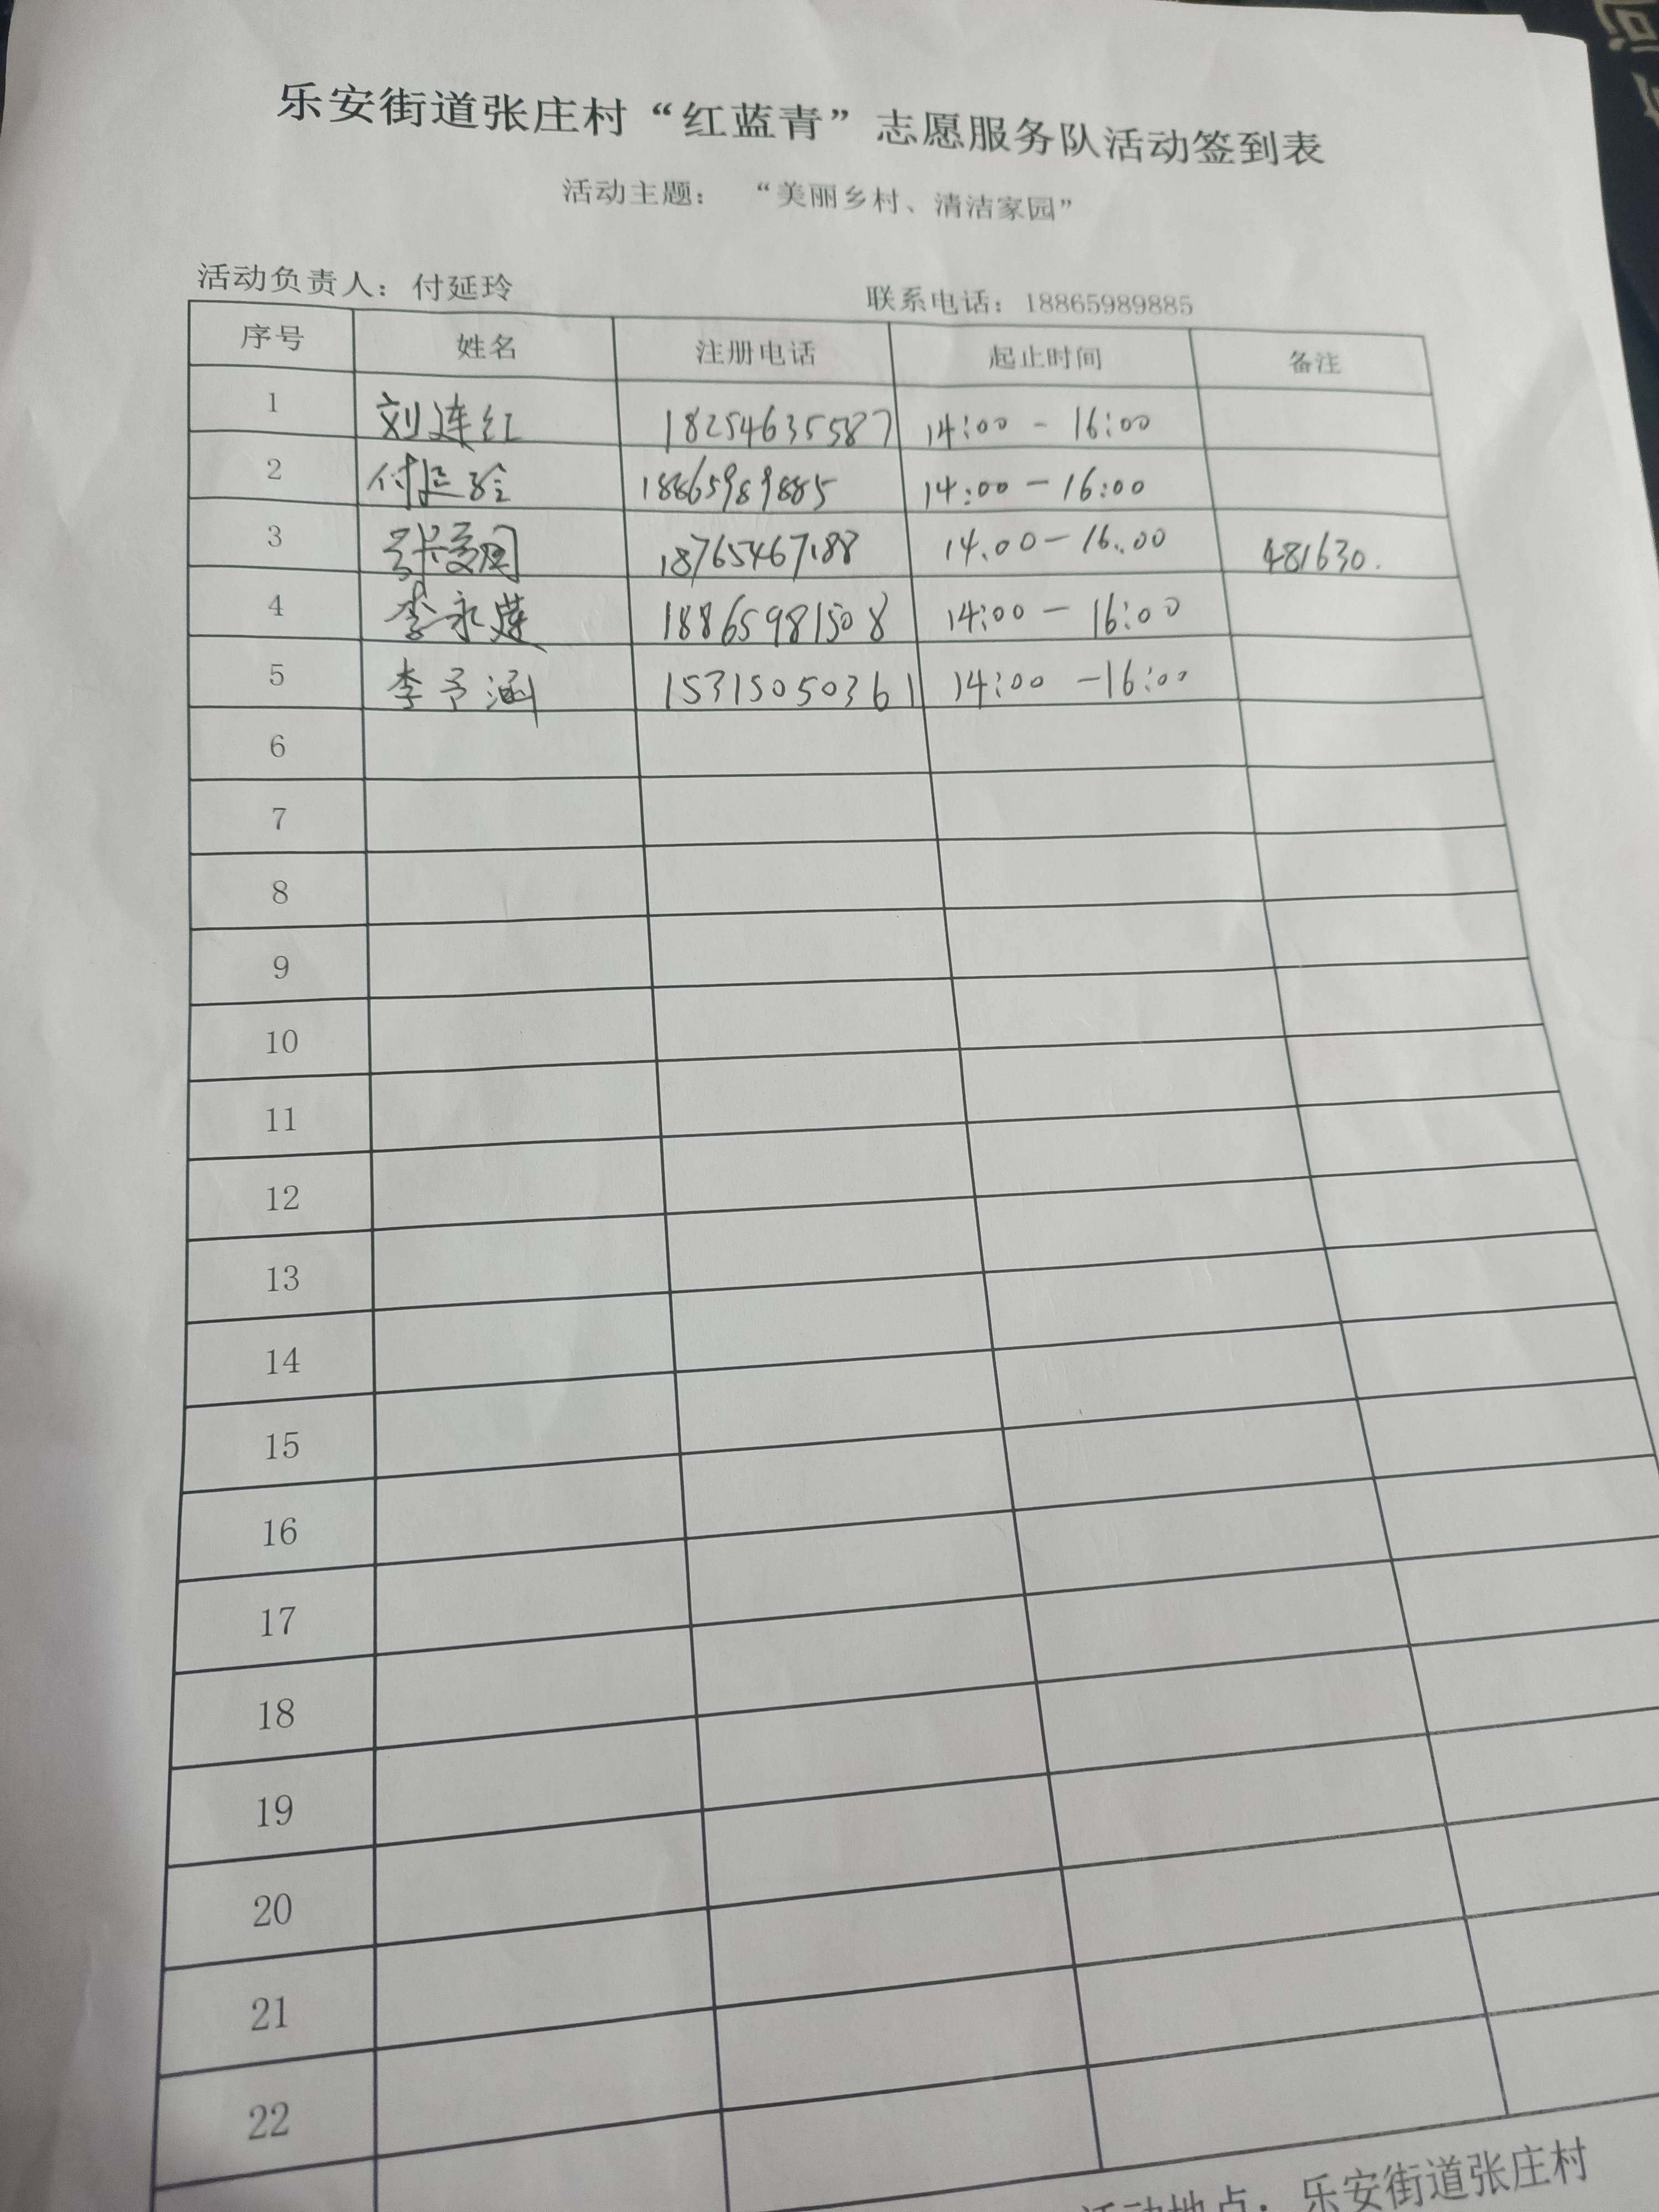 乐安街道张庄村“红蓝青”志愿服务队活动签到表
活动主题： “美丽乡村、清洁家园”
活动负责人：付延玲 联系电话：18865989885
序号 姓名 注册电话 起止时间 备注
1 刘连红 18254635587 14:00 - 16:00
2 付延玲 18865989885 14:00 - 16:00
3 18765467188 14.00 - 16..00 481630.
4 李永莲 18865981508 14:00 - 16:00
5 李予涵 15315050361 14:00 - 16:00
6
7
8
9
10
11
12
13
14
15
16
17
18
19
20
21
22
活动地点：乐安街道张庄村